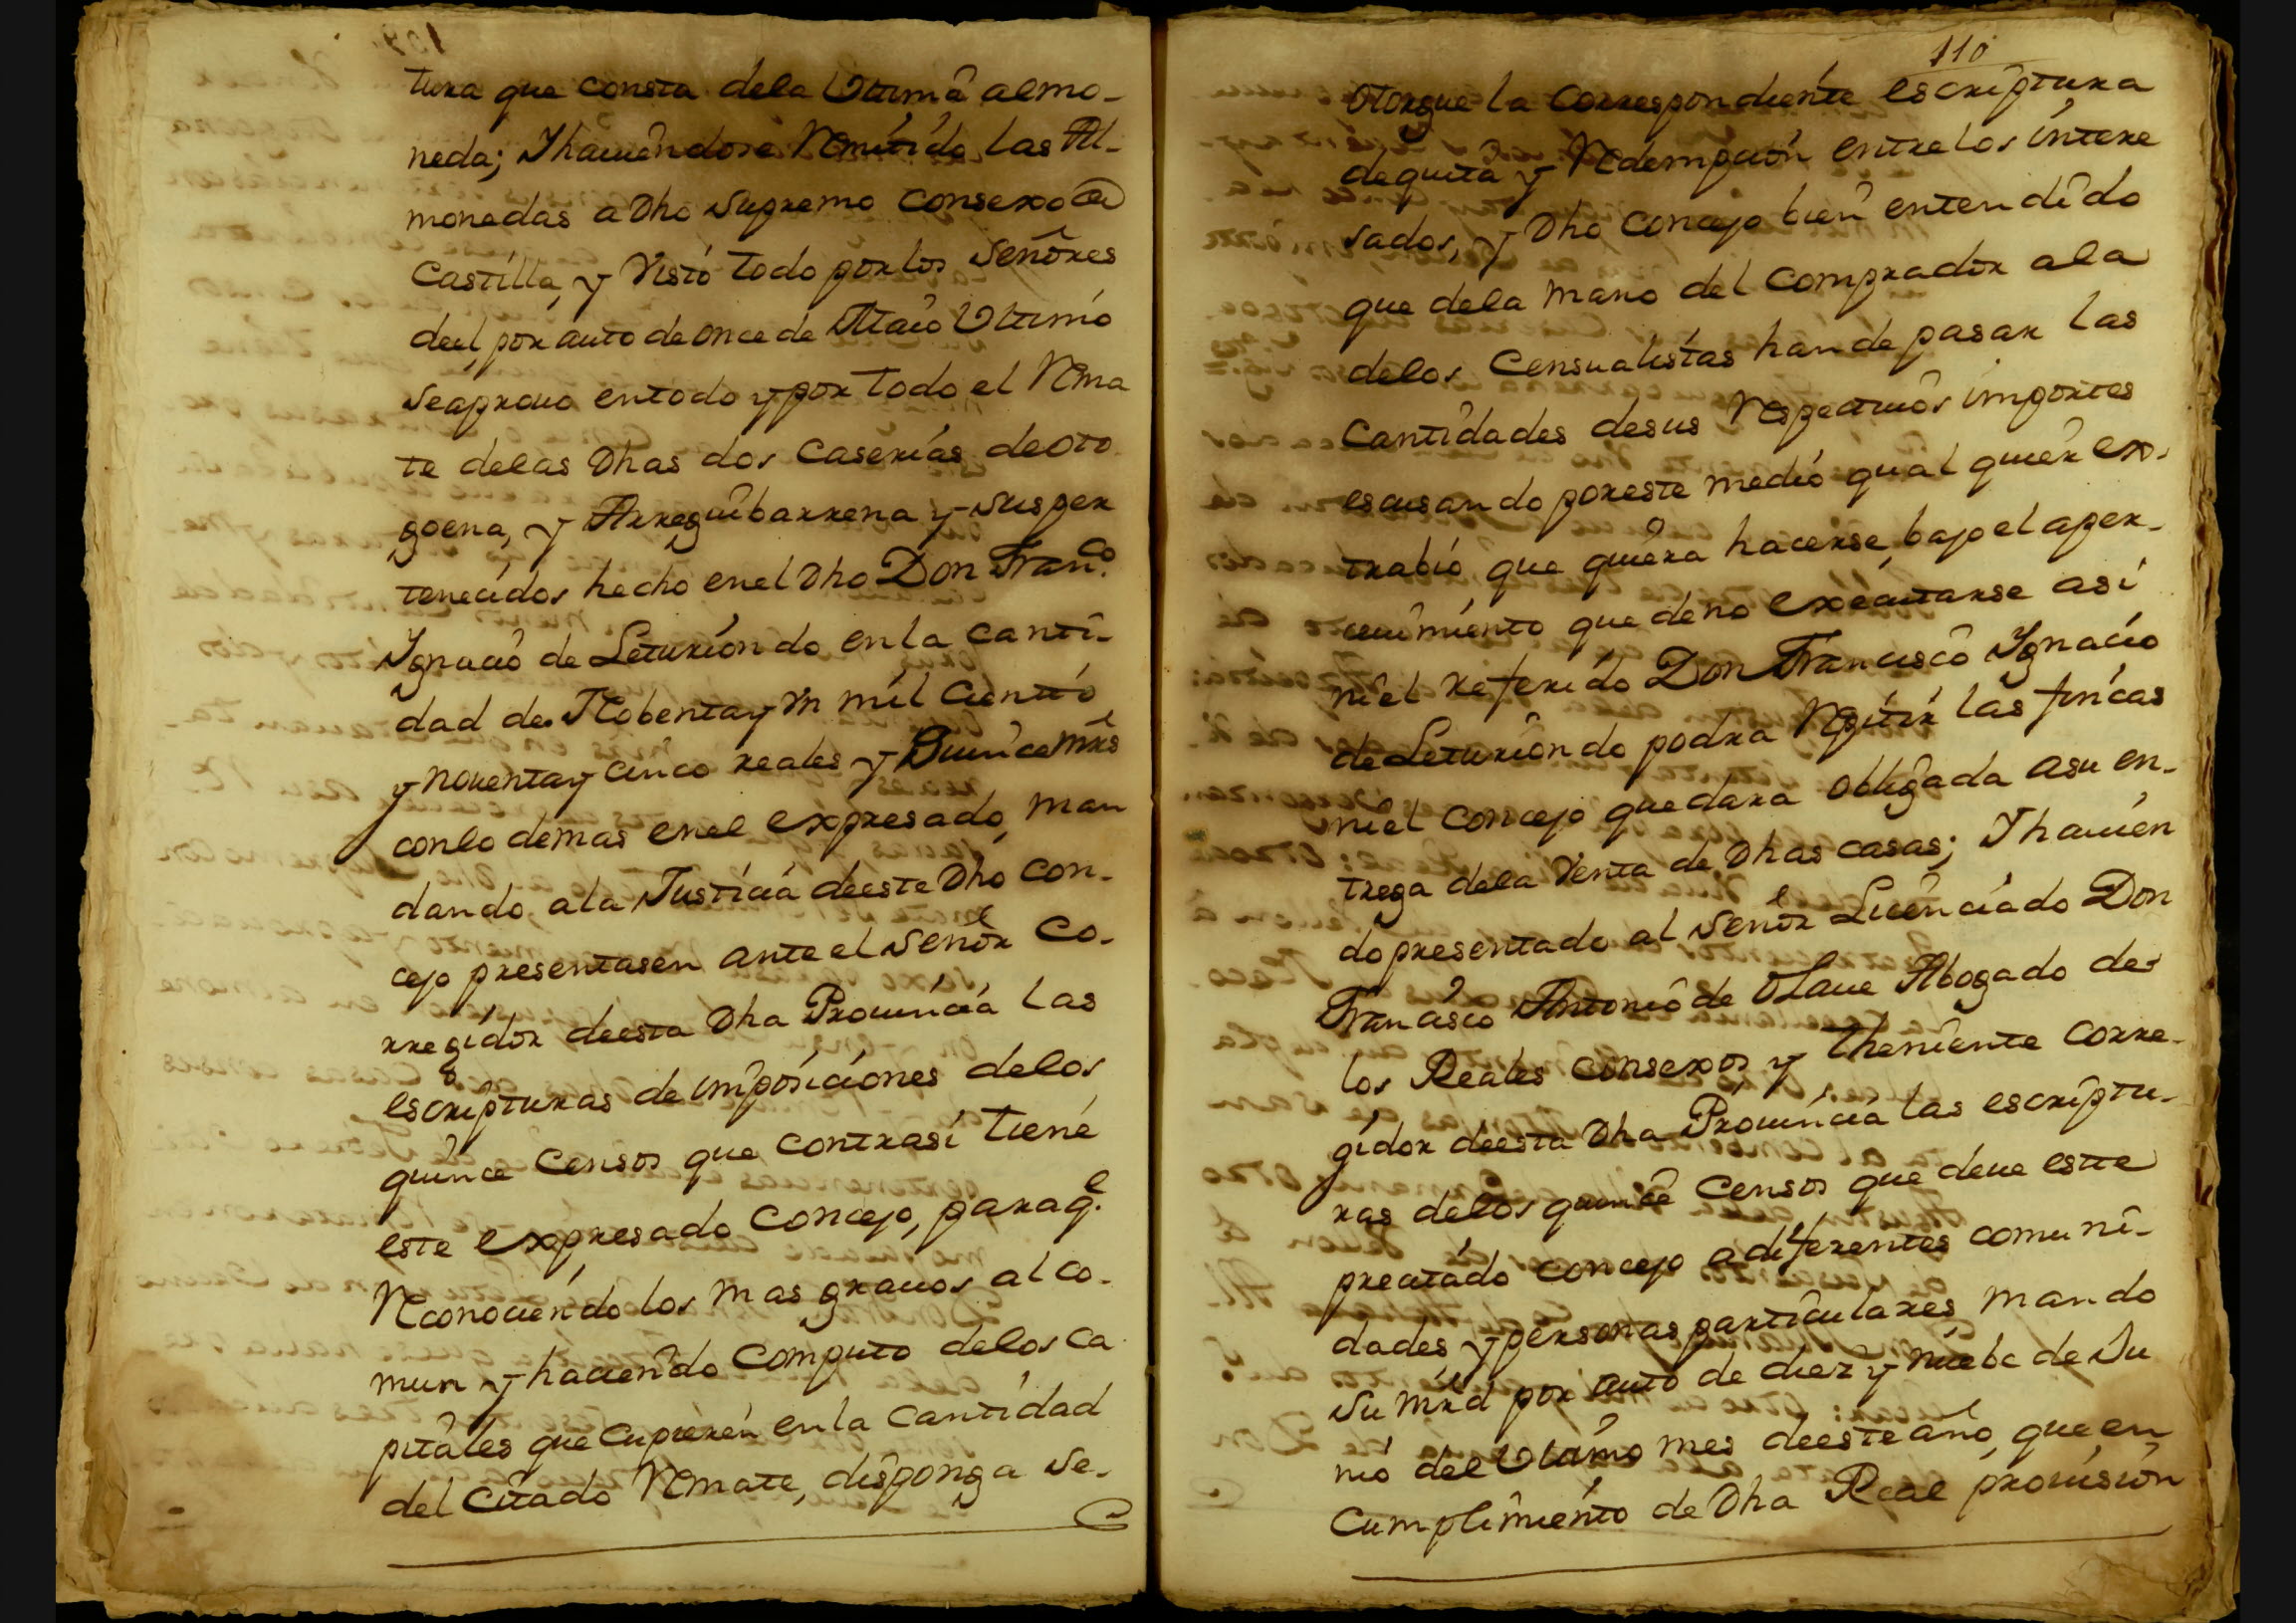 tura que consta dela Ultima almo-
neda; Y haviendose Remitido las Al-
monedas a Dho Supremo Consexo de
Castilla, y Visto todo por los Señores
deel, por auto de once de Maio Ultimo
se aprovo entodo y por todo el Rema
te delas Dhas dos Caserias de Oto
goena, y Arreguibarrena y sus per
tenecidos hecho enel Dho Don Franco.
Ygnacio de Leturiondo en la canti-
dad de Nobenta y Un mil Ciento
y noventa y cinco reales y Quince mrs
conlo demas enel expresado, man
dando, ala Justicia deeste Dho Con-
cejo presentasen ante el Señor Co-
rregidor deesta Dha Provincia las
escripturas de imposiciones delos
quince Censos que contrasi tiene
este expresado Concejo, paraqe.
Reconociendo los mas gravos al co-
mun y haciendo Computo delos Ca
pitales que Cupieren en la Cantidad
del Citado Remate, disponga se-
110
Otorgue la Correspondiente escriptura
de quita y Redempcion entre los intere
sados, y Dho Concejo bien entendido
que dela mano del Comprador ala
delos Censualistas han de pasar las
Cantidades desus Respectivos importes
escusando poreste medio qual quier ex-
trabio que quiera hacerse, bajo el aper-
cevimiento que de no executarse asi
niel referido Don Francisco Ygnacio
de Leturiondo podra Repitir las fincas
niel Concejo quedara obligada asu en-
trega dela Venta de Dhas casas; Y havien
do presentado al Señor Licenciado Don
Francisco Antonio de Olave Abogado de
los Reales Consexos y Theniente Corre-
gidor deesta Dha Provincia las escriptu-
ras delos quince Censos que deve este
precitado Concejo a diferentes comuni-
dades y personas particulares, mando
su mrd por auto de diez y nuebe de Ju
nio del Ultimo mes deeste año, que en
Cumplimiento de Dha Real provision